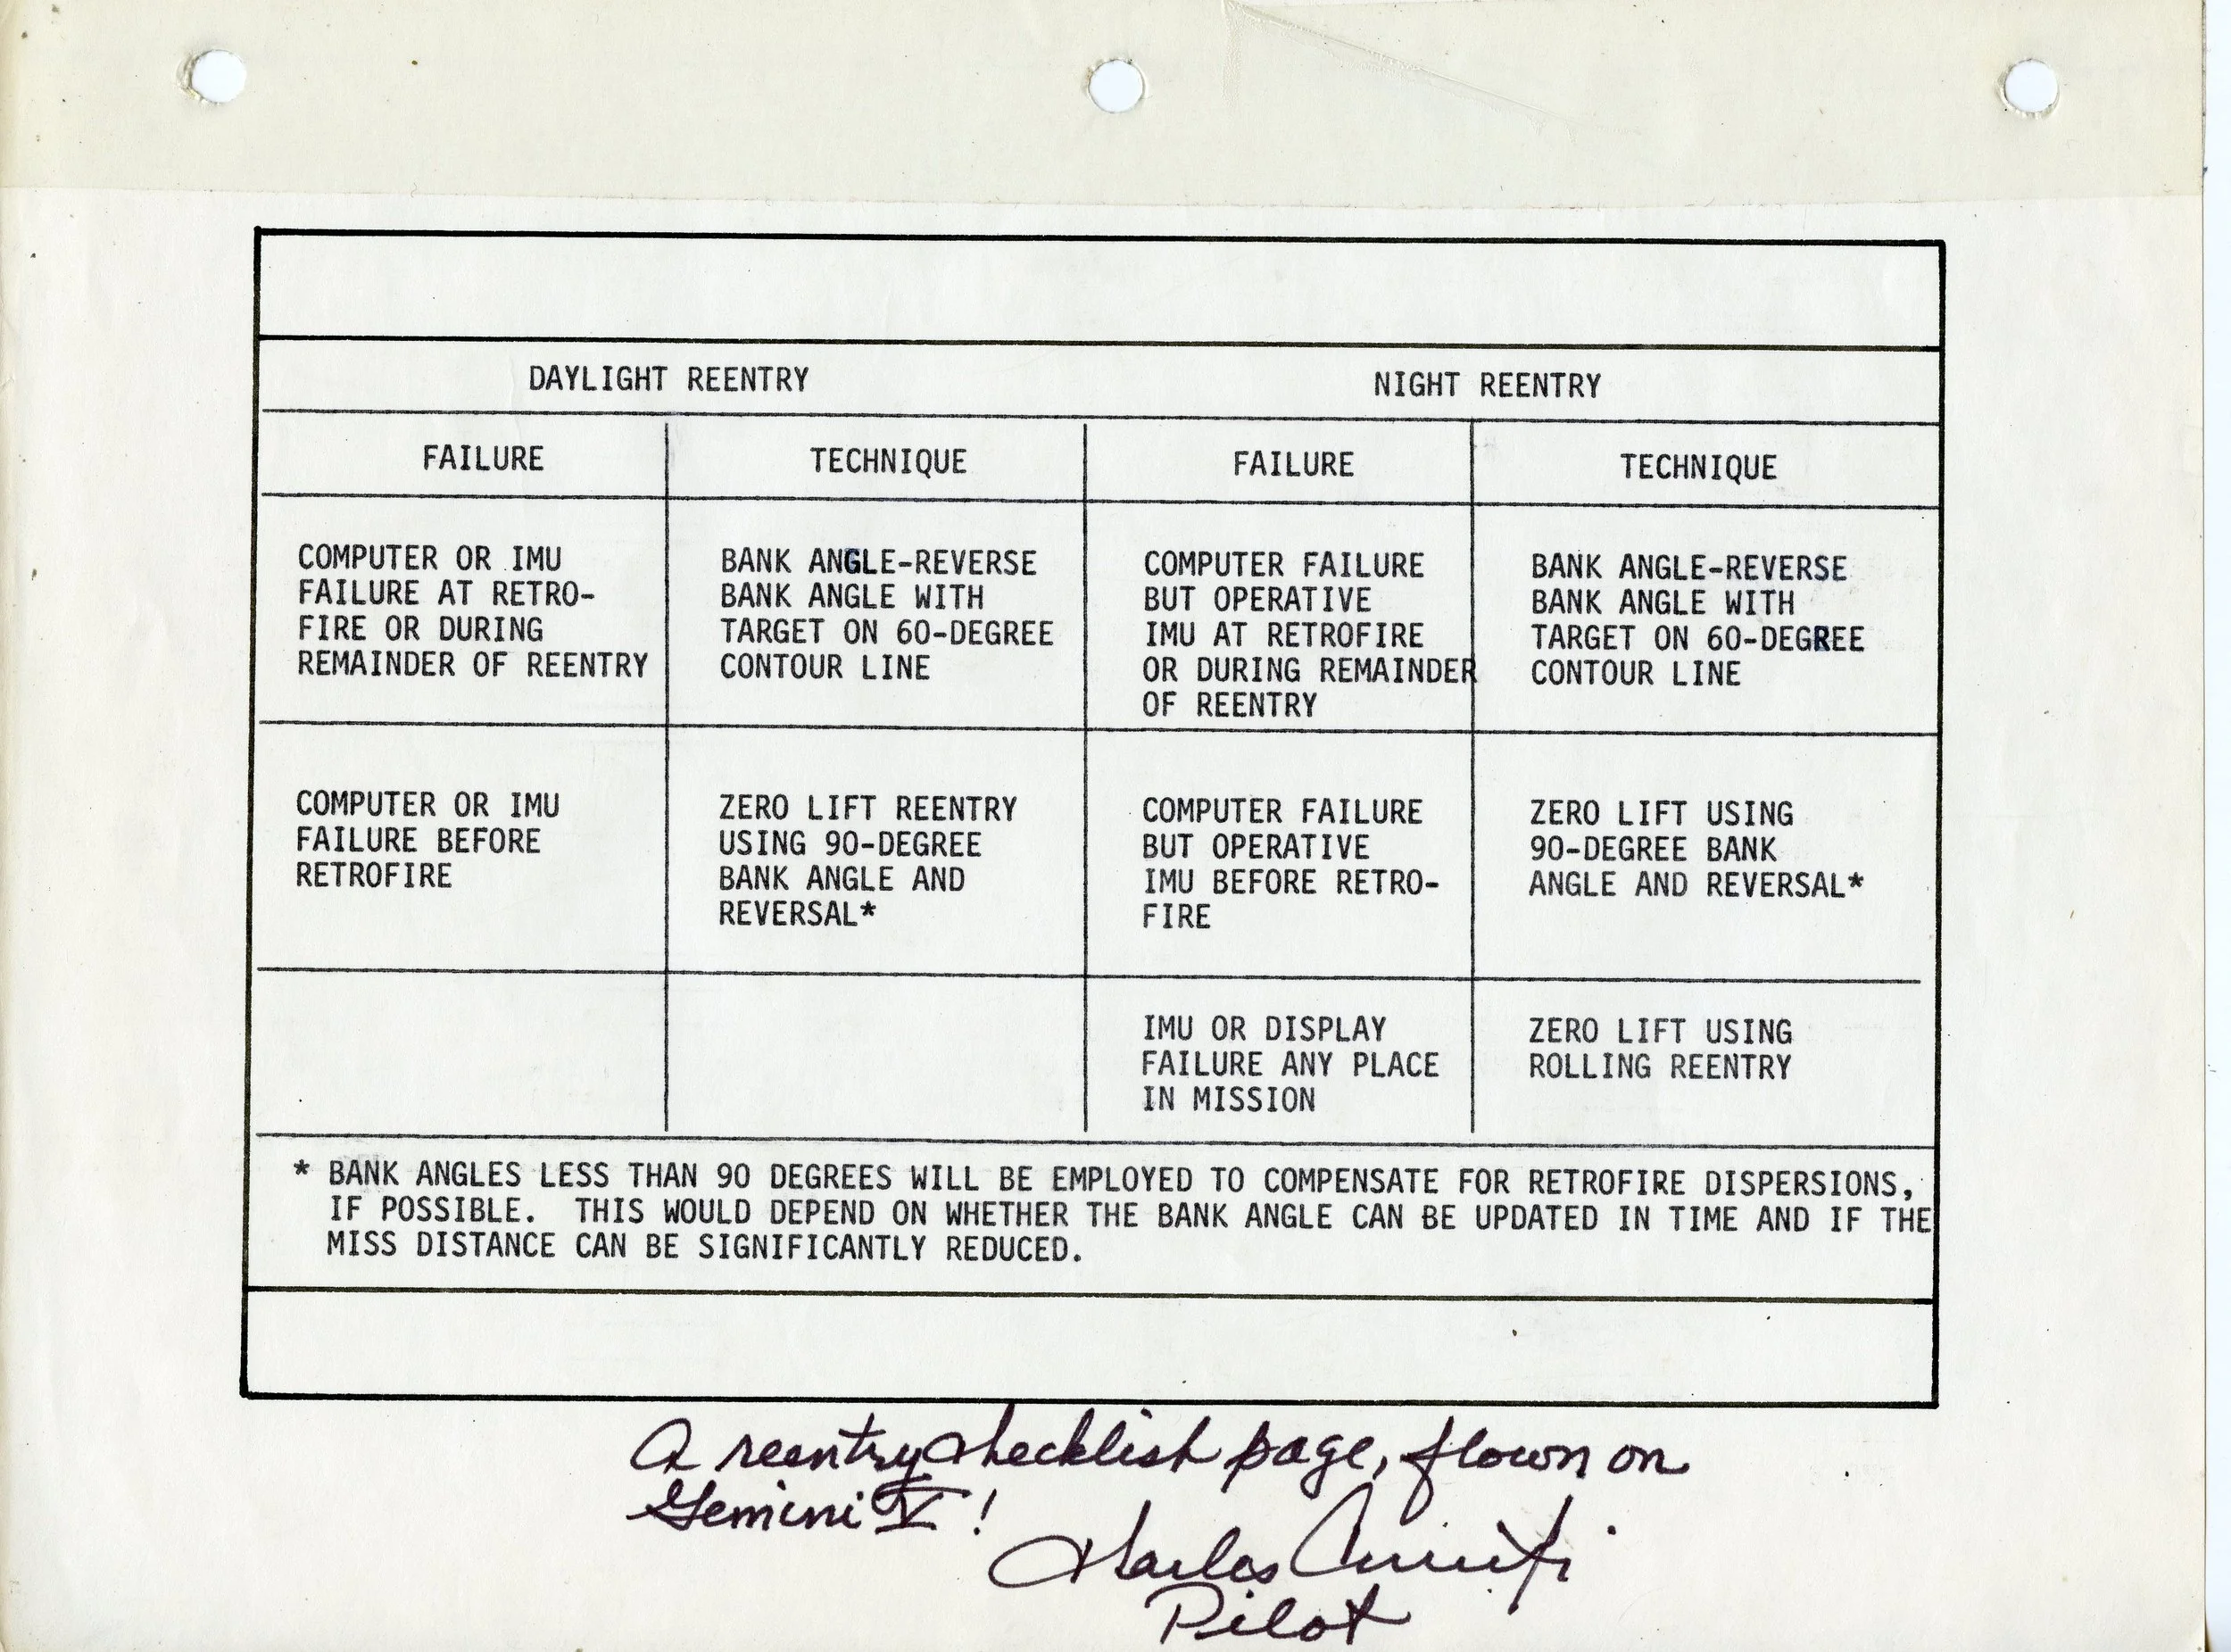 DAYLIGHT REENTRY
NIGHT REENTRY
FAILURE
TECHNIQUE
FAILURE
TECHNIQUE
COMPUTER OR IMU
FAILURE AT RETRO-
FIRE OR DURING
REMAINDER OF REENTRY
BANK ANGLE-REVERSE
BANK ANGLE WITH
TARGET ON 60-DEGREE
CONTOUR LINE
COMPUTER FAILURE
BUT OPERATIVE
IMU AT RETROFIRE
OR DURING REMAINDER
OF REENTRY
BANK ANGLE-REVERSE
BANK ANGLE WITH
TARGET ON 60-DEGREE
CONTOUR LINE
COMPUTER OR IMU
FAILURE BEFORE
RETROFIRE
ZERO LIFT REENTRY
USING 90-DEGREE
BANK ANGLE AND
REVERSAL*
COMPUTER FAILURE
BUT OPERATIVE
IMU BEFORE RETRO-
FIRE
ZERO LIFT USING
90-DEGREE BANK
ANGLE AND REVERSAL*
IMU OR DISPLAY
FAILURE ANY PLACE
IN MISSION
ZERO LIFT USING
ROLLING REENTRY
* BANK ANGLES LESS THAN 90 DEGREES WILL BE EMPLOYED TO COMPENSATE FOR RETROFIRE DISPERSIONS,
IF POSSIBLE. THIS WOULD DEPEND ON WHETHER THE BANK ANGLE CAN BE UPDATED IN TIME AND IF THE
MISS DISTANCE CAN BE SIGNIFICANTLY REDUCED.
A reentry checklist page, flown on
Gemini V!
Charles Conrad Jr.
Pilot